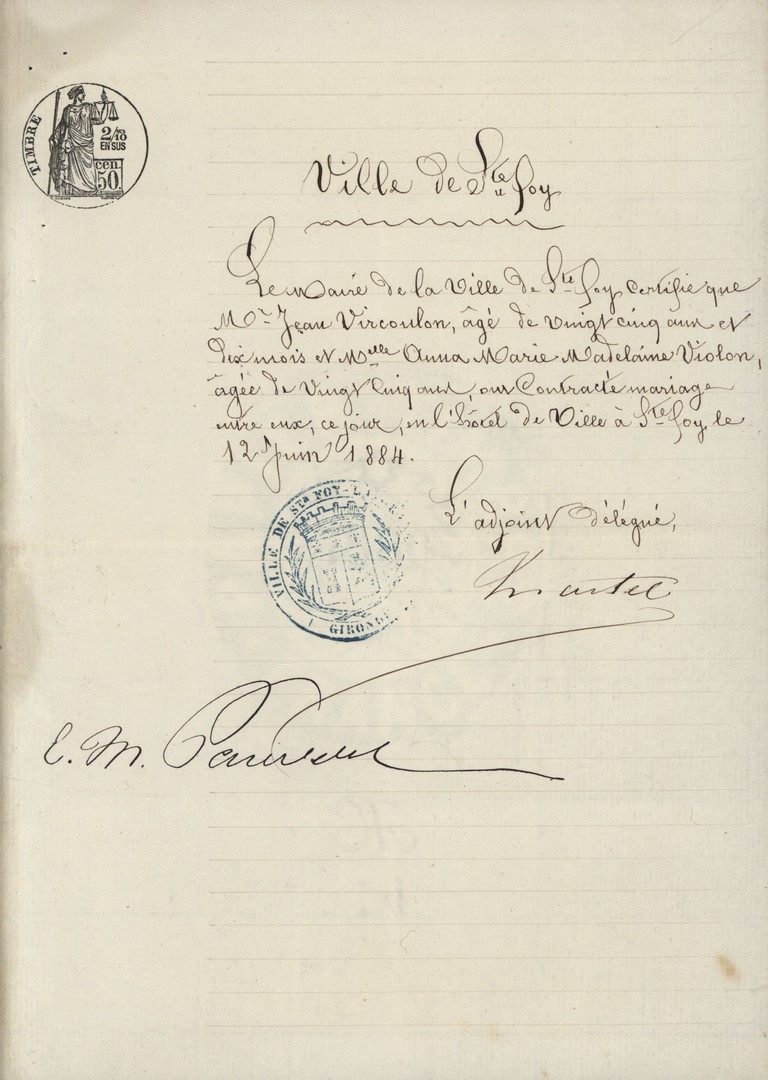 TIMBRE
2/10 EN SUS
cen. 50.
Ville de Ste foy
Le Maire de la Ville de Ste foy, certifie que
Mr Jean Vircoulon, âgé de vingt cinq ans et
dix mois et Melle Anna Marie Madelaine Violon,
âgée de Vingt Cinq ans, ont Contracté mariage
entre eux, ce jour, en l'hôtel de Ville à Ste foy, le
12 Juin 1884.
L'adjoint délégué,
VILLE DE STE FOY-LA-
GIRONDE
E. M.